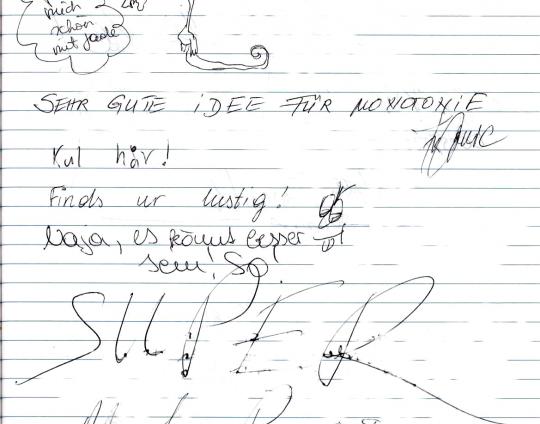 mich
schön
mit jade
SEHR GUTE iDEE FÜR MONOTONiE
Kul här!
Finds ur lustig!
Naja, es könnt besser
sein! So
SUPER